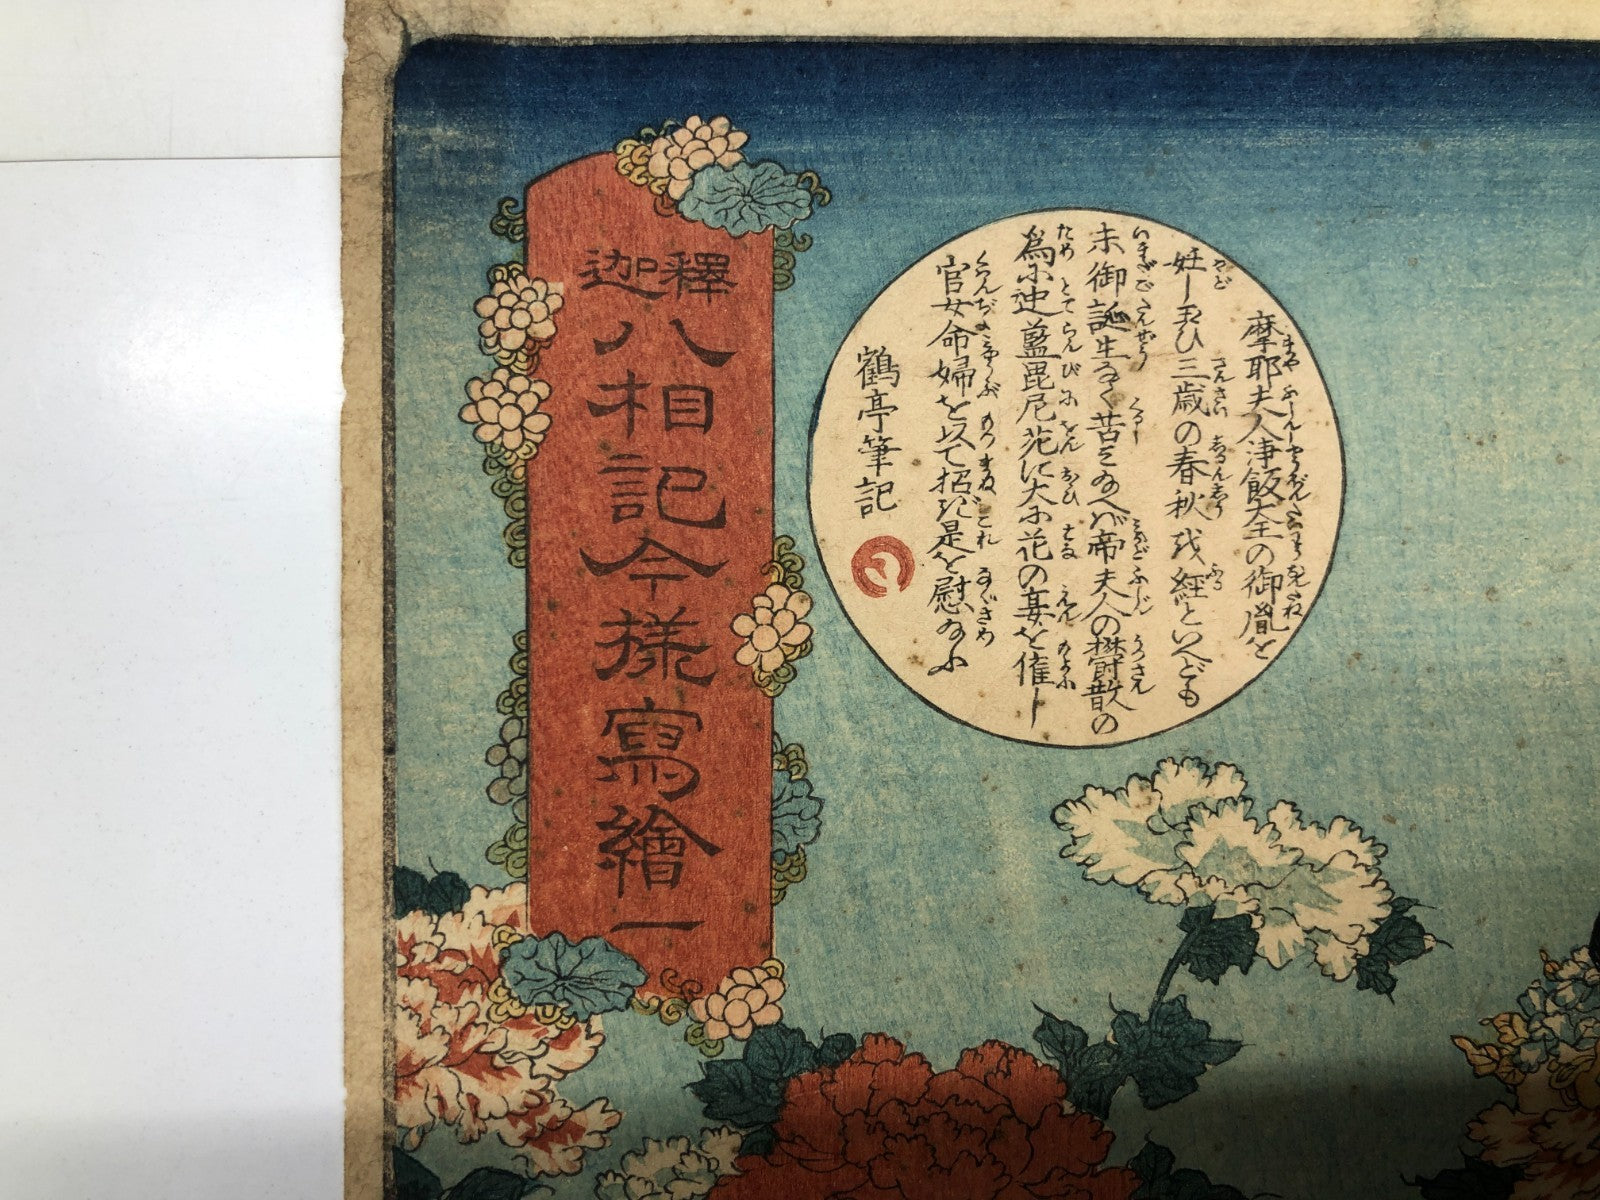 摩耶夫人浄飯大王の御胤を
妊し玉ひ三歳の春秋を経といへども
未御誕生なく苦みなへば帝夫人の欝散の
為に迦藍毘尼苑に大に花の宴を催し
官女命婦を以て招き是を慰なふ
鶴亭筆記
釋迦
八相記今様寫繪一